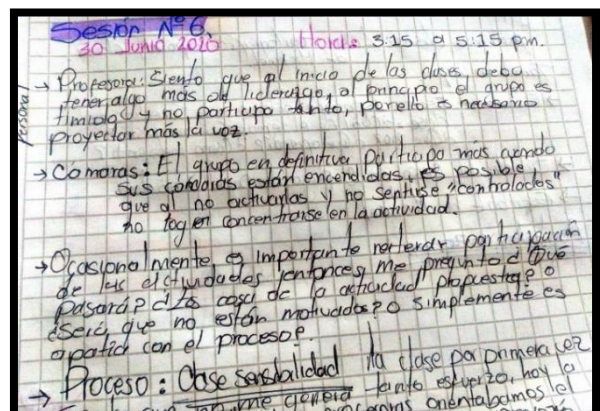 Sesión Nº6.
30 Junio 2020 Hora: 3:15 a 5:15 p.m.
personal
→ Profesora: Siento que al inicio de las clases, debo
tener algo más de liderazgo, al principio el grupo es
tímido y no participa tanto, por ello es necesario
proyectar más la voz.
→ Cámaras: El grupo en definitiva participa mas cuando
sus cámaras están encendidas, es posible
que al no activarlas y no sentirse "controlados"
no logren concentrarse en la actividad.
→ Ocasionalmente, es importante reiterar participación
de las actividades entonces, me pregunto ¿Qué
pasará? ¿Es cosa de la actividad propuesta? o
¿Será que no están motivados? o simplemente es
apatía con el proceso?
→ Proceso: Clase sensibilidad la clase por primera vez
me genera tanto esfuerzo, hoy a
orientabamos el